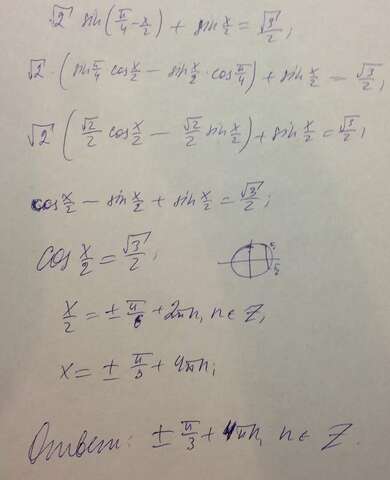 √2 sin(π/4 - x/2) + sin x/2 = √3/2;
√2 · (sin π/4 cos x/2 - sin x/2 · cos π/4) + sin x/2 = √3/2;
√2 (√2/2 cos x/2 - √2/2 sin x/2) + sin x/2 = √3/2;
cos x/2 - sin x/2 + sin x/2 = √3/2;
cos x/2 = √3/2;
x/2 = ± π/6 + 2πn, n ∈ Z,
x = ± π/3 + 4πn;
Ответ: ± π/3 + 4πn, n ∈ Z.